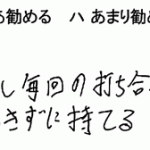 う勧める　ハ あまり勧め
し毎回の打ち合
きずに持てる